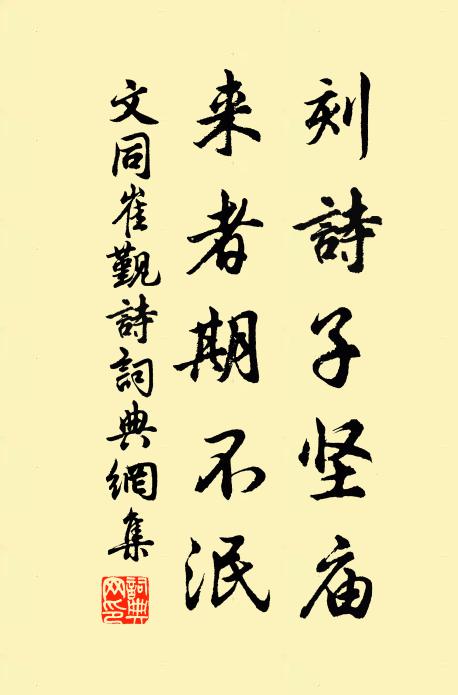 刻詩子坚庙
来者期不泯
文同崔觐詩詞典網集
詞典网印